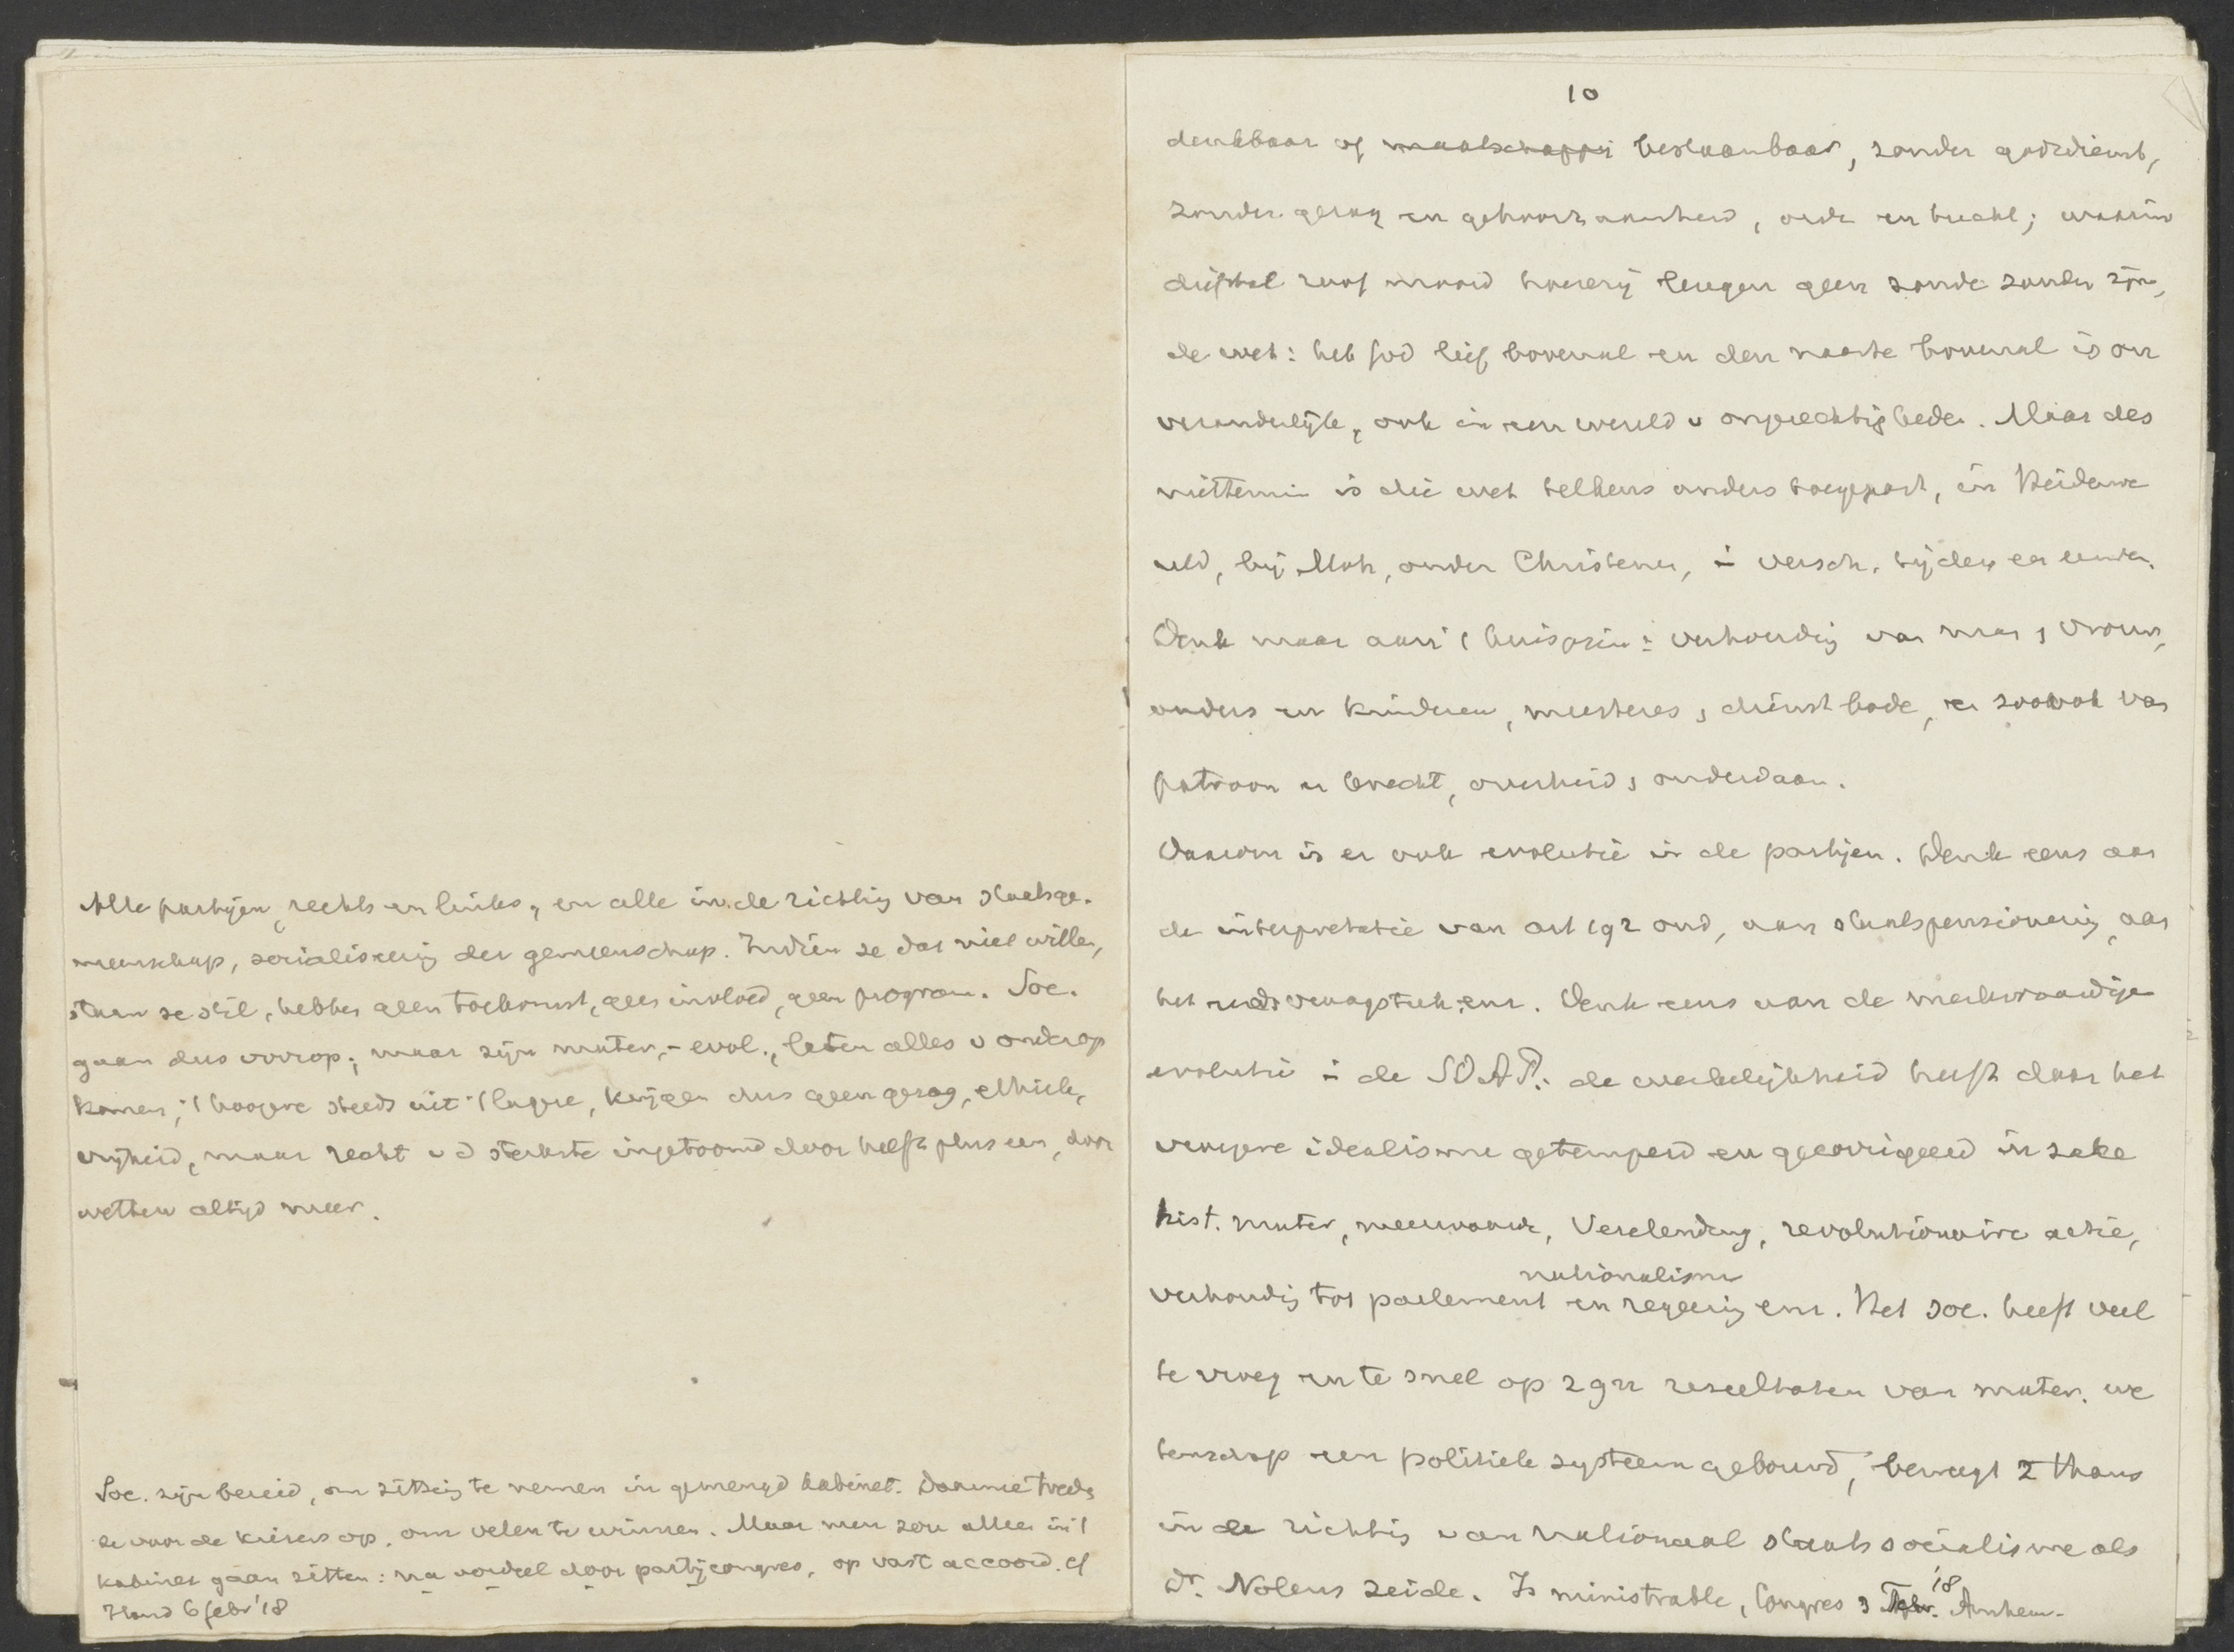 Alle partijen, rechts en links, en alle in de richting van staatsge-
meenschap, socialiseering der gemeenschap. Indien ze dat niet willen,
staan ze stil, hebben geen toekomst, geen invloed, geen program. Soc.
gaan dus voorop; maar zijn mater.-evol., laten alles v onderop
komen; 't hoogere steeds uit 't lagere, krijgen dus geen gezag, ethiek,
vrijheid, maar recht v d sterkste ingetoomd door helft plus een, door
wetten altijd meer.
Soc. zijn bereid, om zitting te nemen in gemengd kabinet. Daarmee treden
ze voor de kiezers op, om velen te winnen. Maar men zou alleen in 't
kabinet gaan zitten: na oordeel door partijcongres, op vast accoord. cf
Hand 6 febr '18
10
denkbaar of maatschappij bestaanbaar, zonder godsdienst,
zonder gezag en gehoorzaamheid, orde en tucht; waarin
diefstal roof moord hoererij leugen geen zonde zouden zijn,
de wet: heb God lief bovenal en den naaste bovenal is on
veranderlijk, ook in een wereld v ongerechtigheden. Maar des
niettemin is die wet telkens anders toegepast, in Heidenwe
reld, bij Moh, onder Christenen, in versch. tijden en landen.
Denk maar aan 't huisgezin: verhouding van man & vrouw,
ouders en kinderen, meesteres & dienstbode, en zoo ook van
patroon en knecht, overheid & onderdaan.
Daarom is er ook evolutie in de partijen. Denk eens aan
de interpretatie van art 192 oud, aan staatspensioneering, aan
het vraagstuk enz. Denk eens aan de merkwaardige
evolutie in de SDAP.: de werkelijkheid heeft daar het
vroegere idealisme getemperd en gecorrigeerd in zake
hist. mater, meerwaarde, Verelendung, revolutionaire actie,
nationalisme
verhouding tot parlement en regeering enz. Het soc. heeft veel
te vroeg en te snel op zgn resultaten van mater. we
tenschap een politiek systeem gebouwd, beweegt z thans
in de richting van nationaal staatssocialisme als
Dr. Nolens zeide. Is ministrable, Congres 3 Febr. '18 Arnhem.